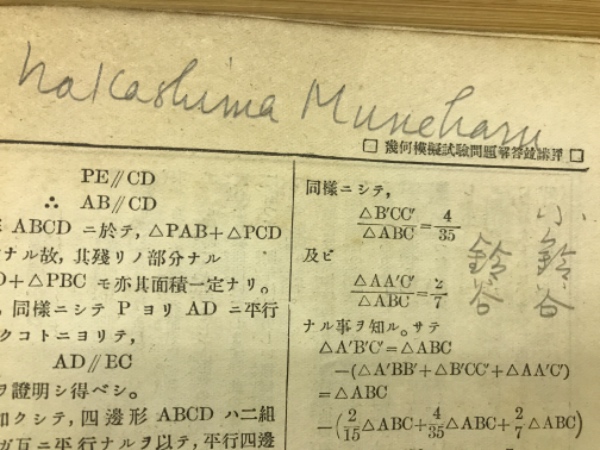 Nakashima Muneharu
□ 幾何模擬試驗問題解答並講評 □
PE//CD
∴ AB//CD
ABCD ニ於テ, △PAB+△PCD
ナル故, 其殘リノ部分ナル
+△PBC モ亦其面積一定ナリ。
同樣ニシテ P ヨリ AD ニ平行
クコトニヨリテ,
AD//EC
ヲ證明シ得ベシ。
如クシテ, 四邊形 ABCD ハ二組
ガ互ニ平行ナルヲ以テ, 平行四邊
同樣ニシテ,
△B′CC′/△ABC=4/35
及ビ
△AA′C′/△ABC=2/7
ナル事ヲ知ル。サテ
△A′B′C′=△ABC
−(△A′BB′+△B′CC′+△AA′C′)
=△ABC
−(2/15△ABC+4/35△ABC+2/7△ABC)
小鈴谷
鈴谷